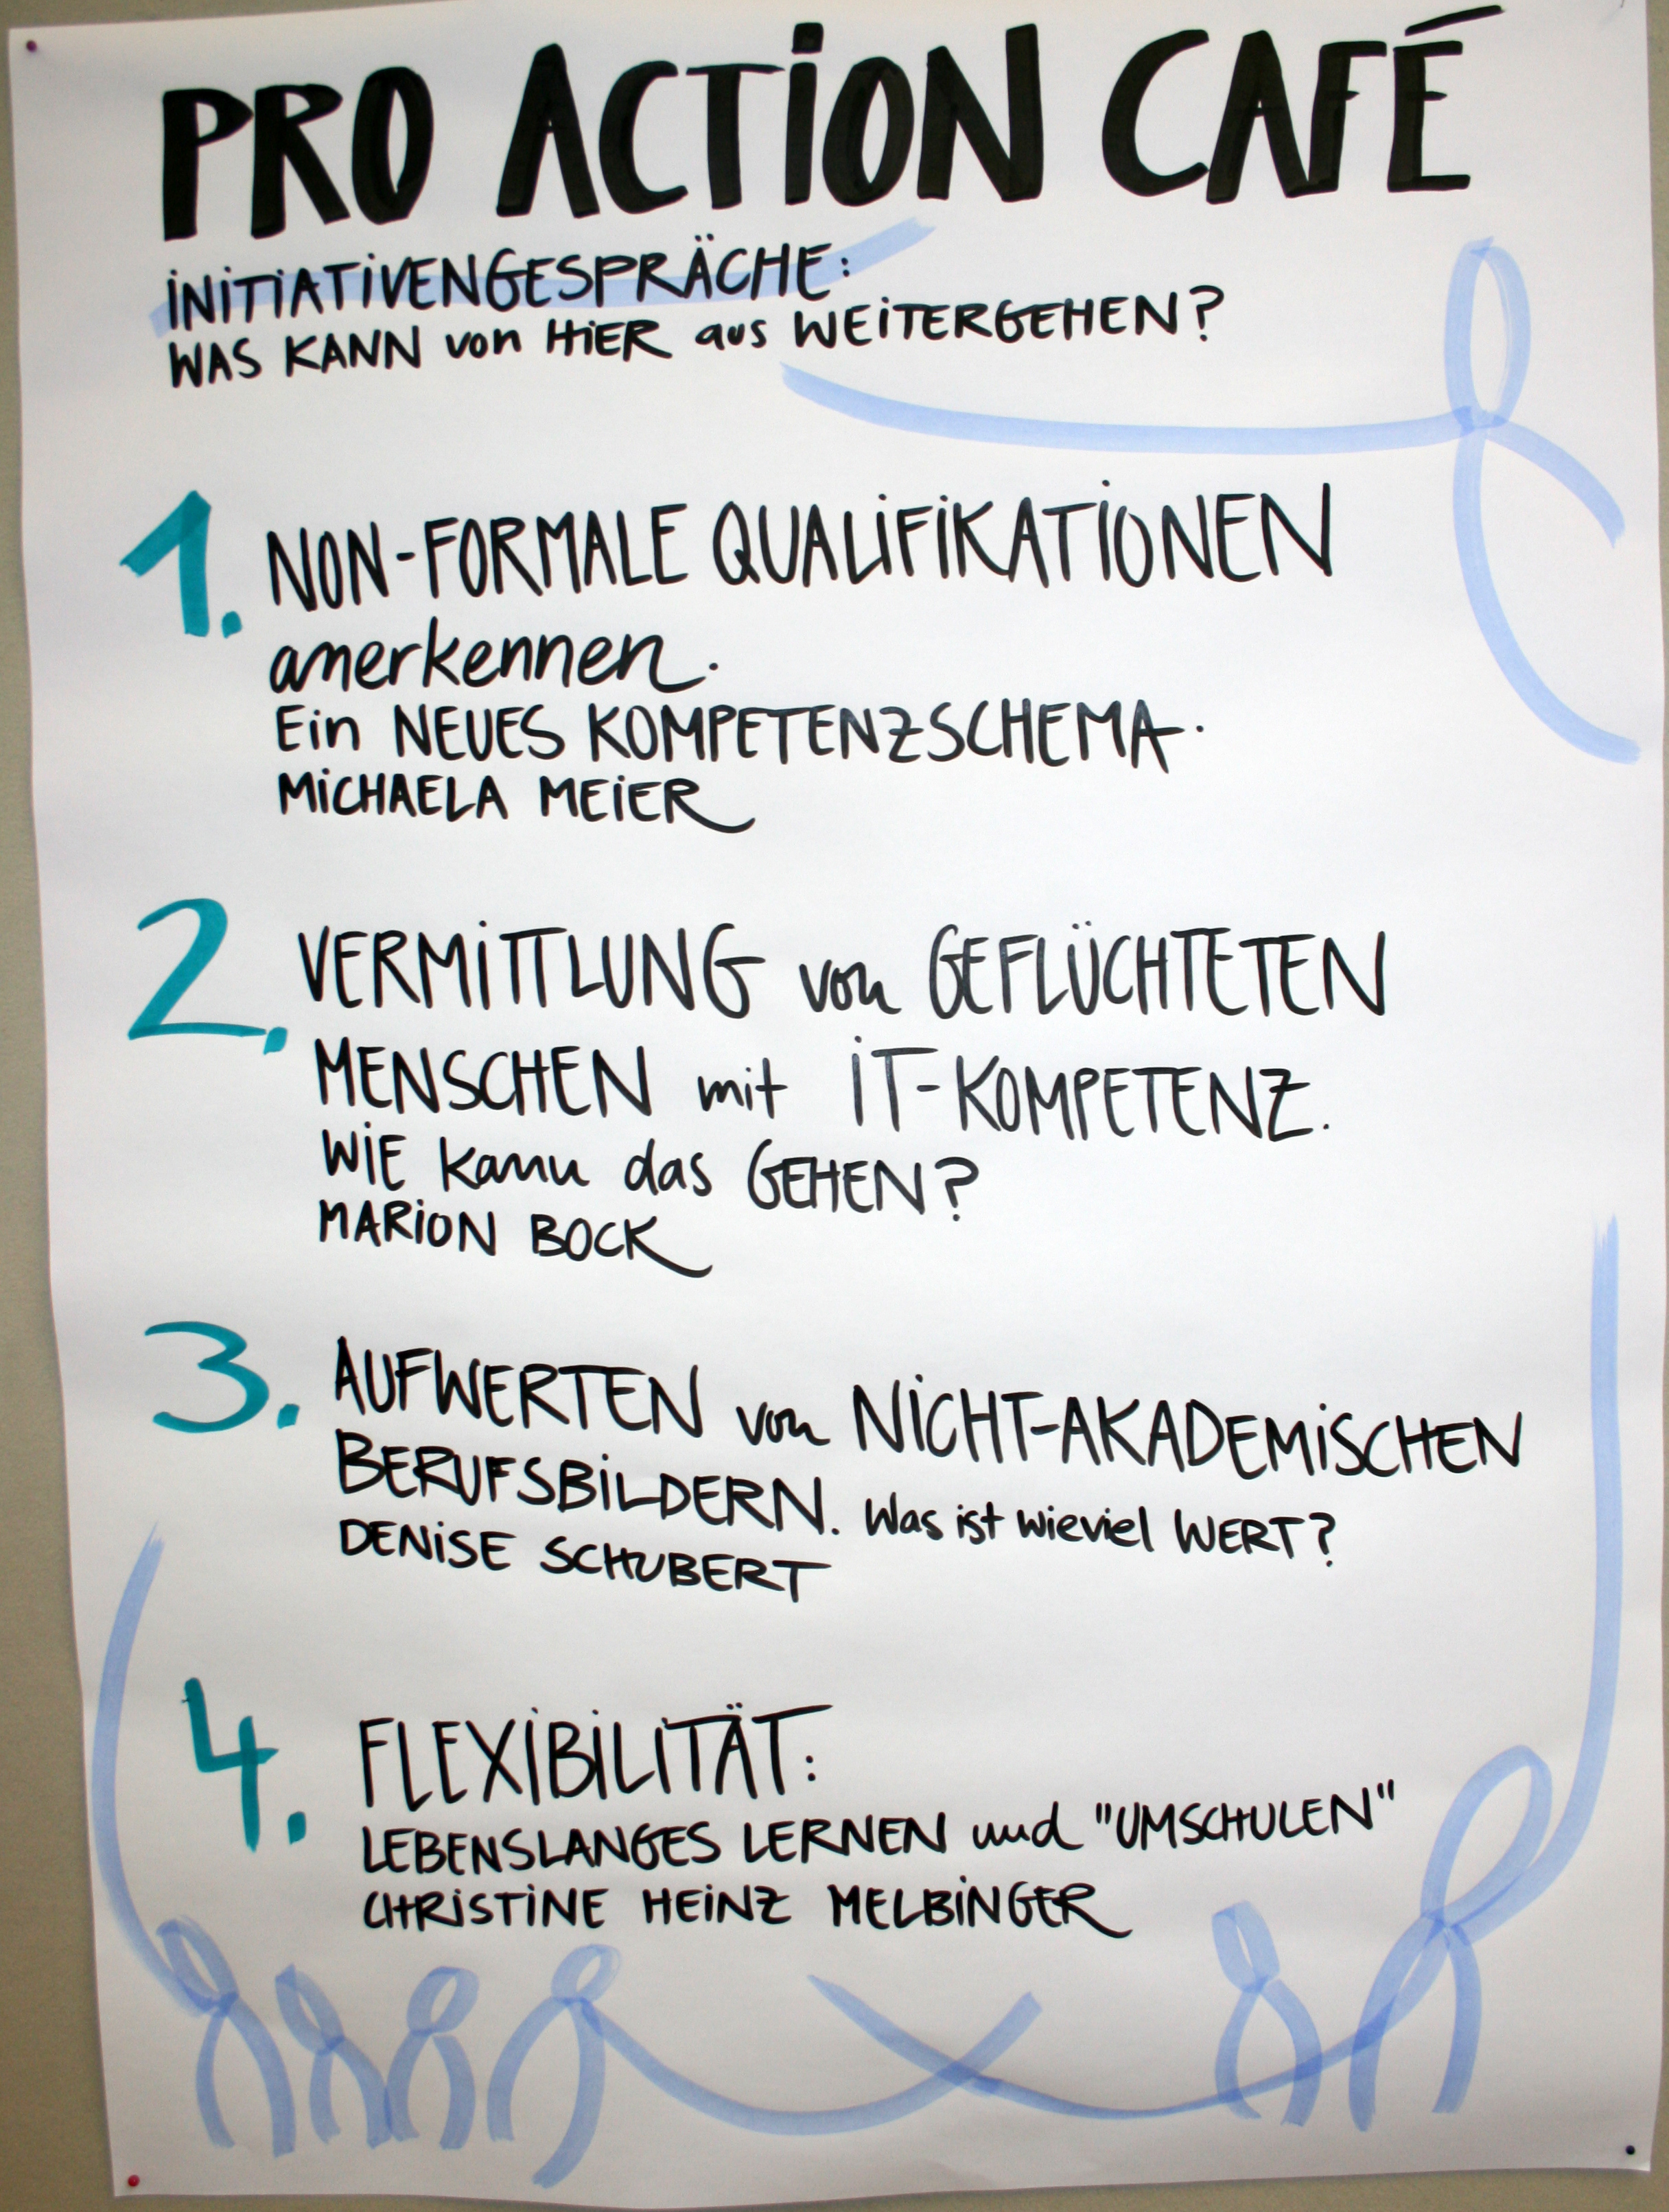 PRO ACTION CAFÉ
INITIATIVENGESPRÄCHE:
WAS KANN von HIER aus WEITERGEHEN?
1. NON-FORMALE QUALIFIKATIONEN
anerkennen.
Ein NEUES KOMPETENZSCHEMA.
MICHAELA MEIER
2. VERMITTLUNG von GEFLÜCHTETEN
MENSCHEN mit IT-KOMPETENZ.
WIE kann das GEHEN?
MARION BOCK
3. AUFWERTEN von NICHT-AKADEMISCHEN
BERUFSBILDERN. Was ist wieviel WERT?
DENISE SCHUBERT
4. FLEXIBILITÄT:
LEBENSLANGES LERNEN und "UMSCHULEN"
CHRISTINE HEINZ MELBINGER